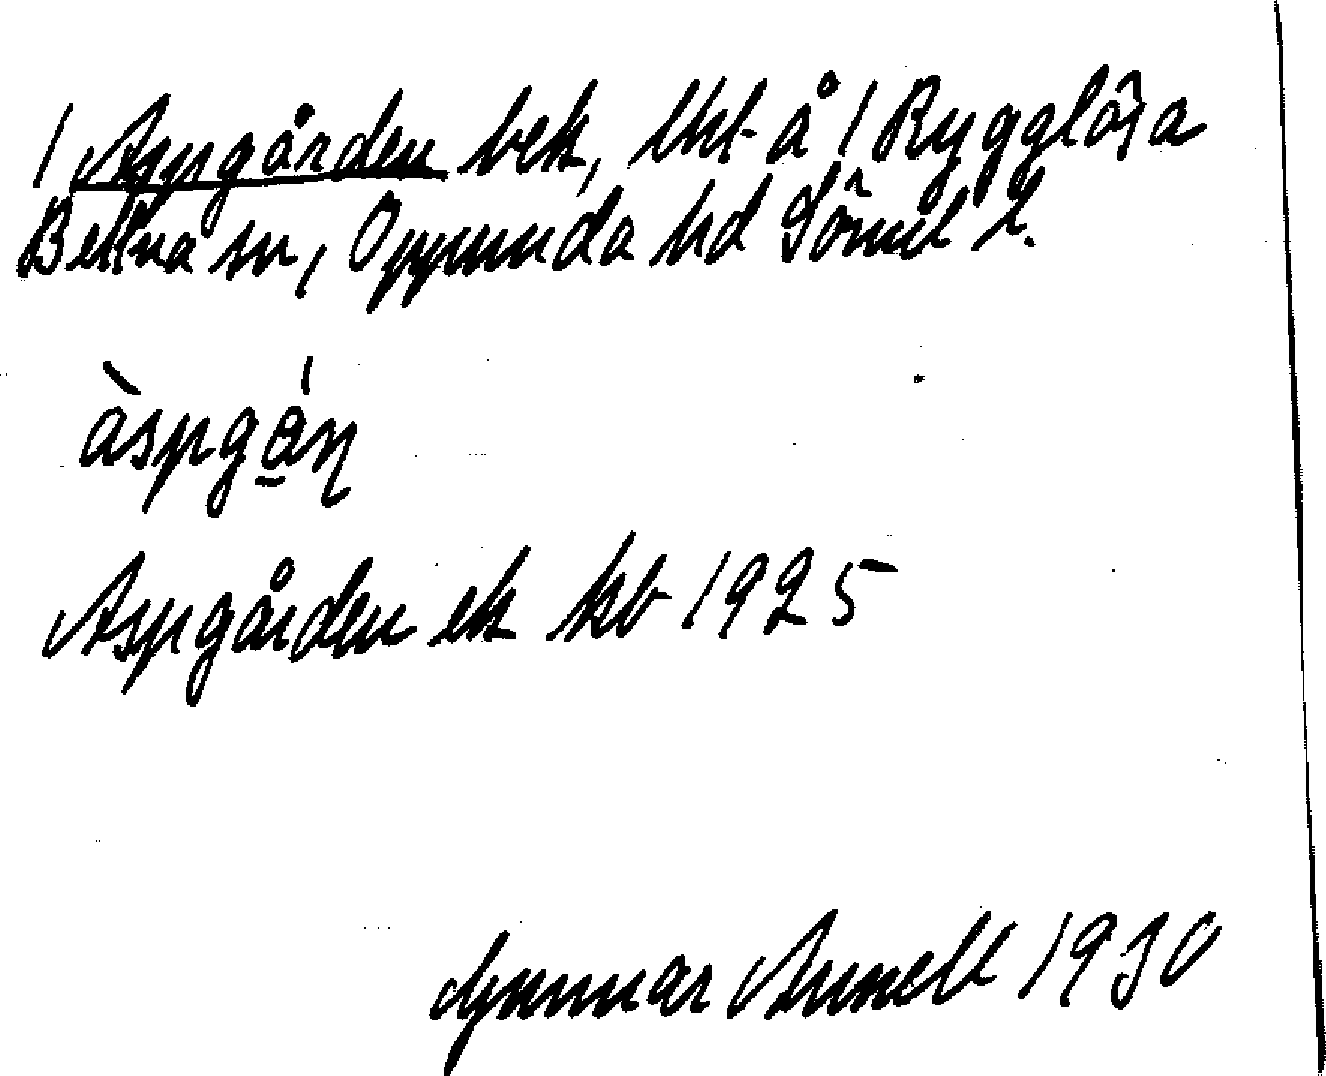 1 Aspgården bek, lht å 1 Rygglösa
Bettna sn, Oppunda hd Söml l.
àspgá̱ṇ
Aspgården ek kb 1925
Gunnar 1930